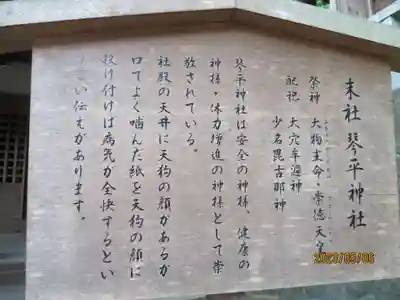 末社 琴平神社
祭神 大物主命・崇徳天皇
配祀 大穴牟遅神
少名毘古那神
琴平神社は安全の神様、健康の
神様・体力増進の神様として崇
敬されている。
社殿の天井に天狗の顔があるが
口でよく噛んだ紙を天狗の顔に
投げ付けは病気が全快するとい
い伝えがあります。
2023/05/06